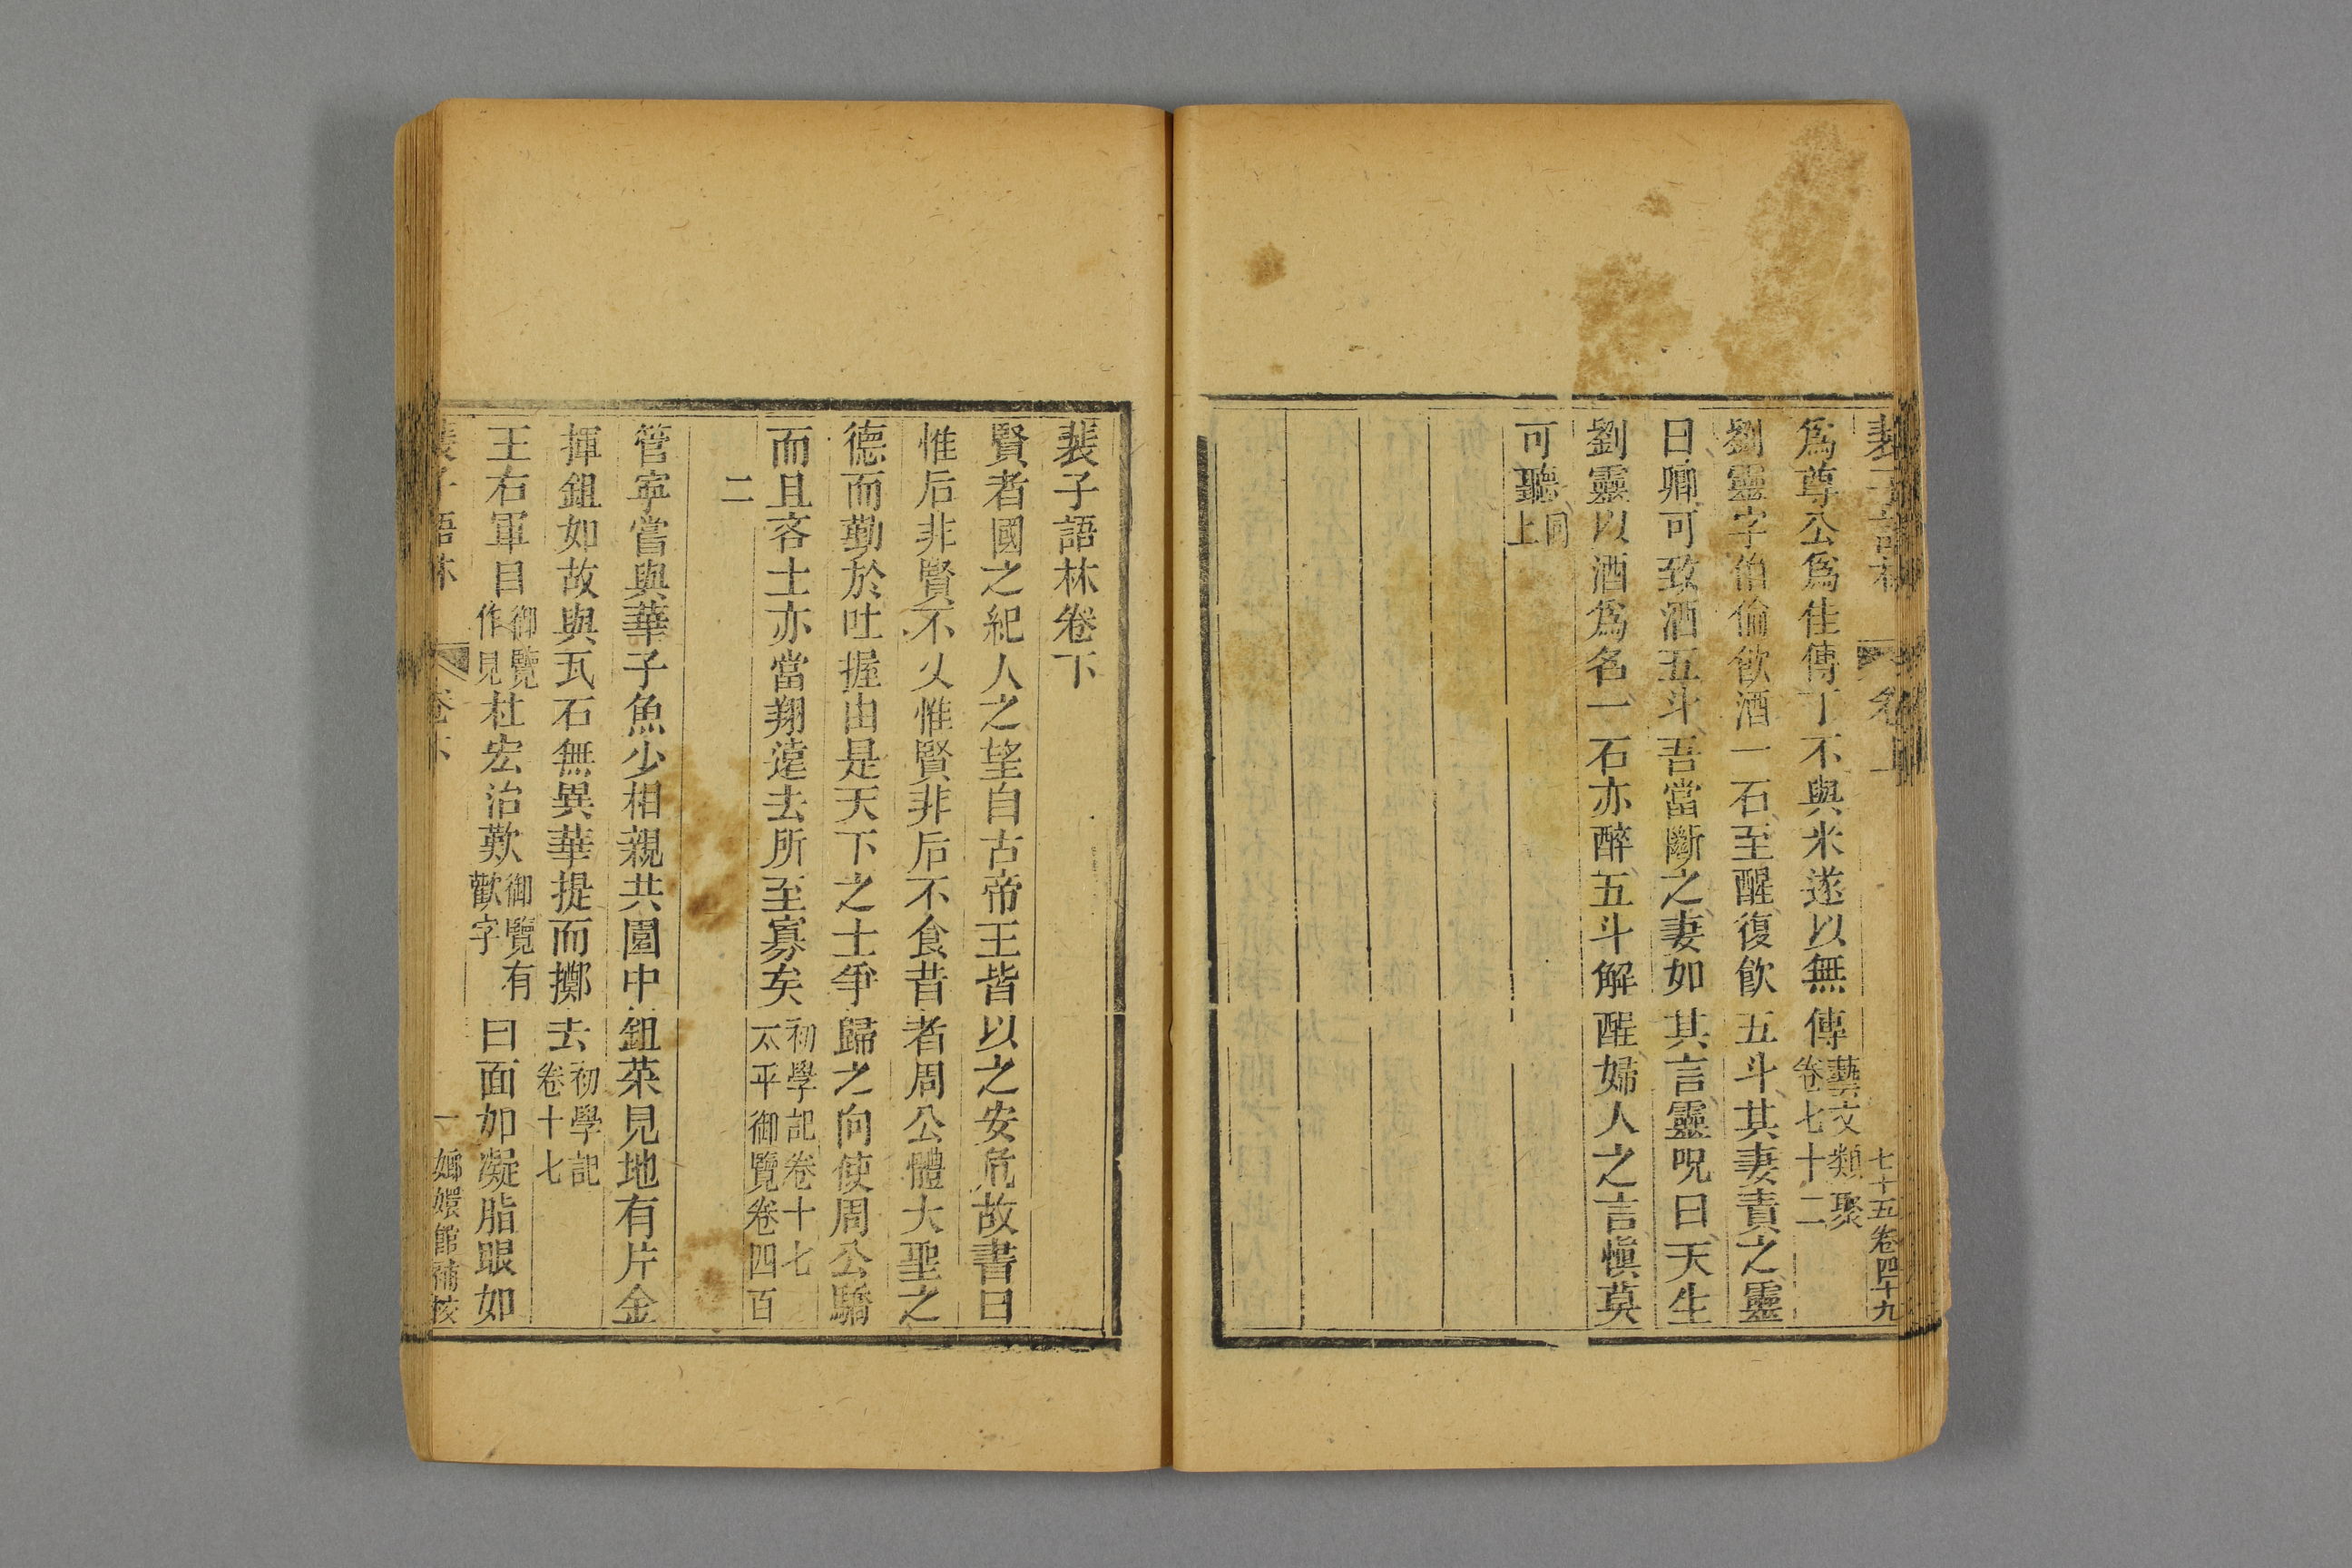 裴子語林
卷上
七十五卷四十九
爲尊公爲佳傳丁不與米遂以無傳藝文類聚
卷七十二
劉靈字伯倫飮酒一石至醒復飮五斗其妻責之靈
曰卿可致酒五斗吾當斷之妻如其言靈呪曰天生
劉靈以酒爲名一石亦醉五斗解酲婦人之言愼莫
可聽同
上
裴子語林卷下
賢者國之紀人之望自古帝王皆以之安危故書曰
惟后非賢不乂惟賢非后不食昔者周公體大聖之
德而勤於吐握由是天下之士爭歸之向使周公驕
而且吝士亦當翔遠去所至寡矣初學記卷十七
太平御覽卷四百
二
管寧嘗與華子魚少相親共園中鉏菜見地有片金
揮鉏如故與瓦石無異華提而擲去初學記
卷十七
王右軍目御覽
作見杜宏治歎御覽有
歡字曰面如凝脂眼如
裴子語林
卷下
一
嫏嬛館補校